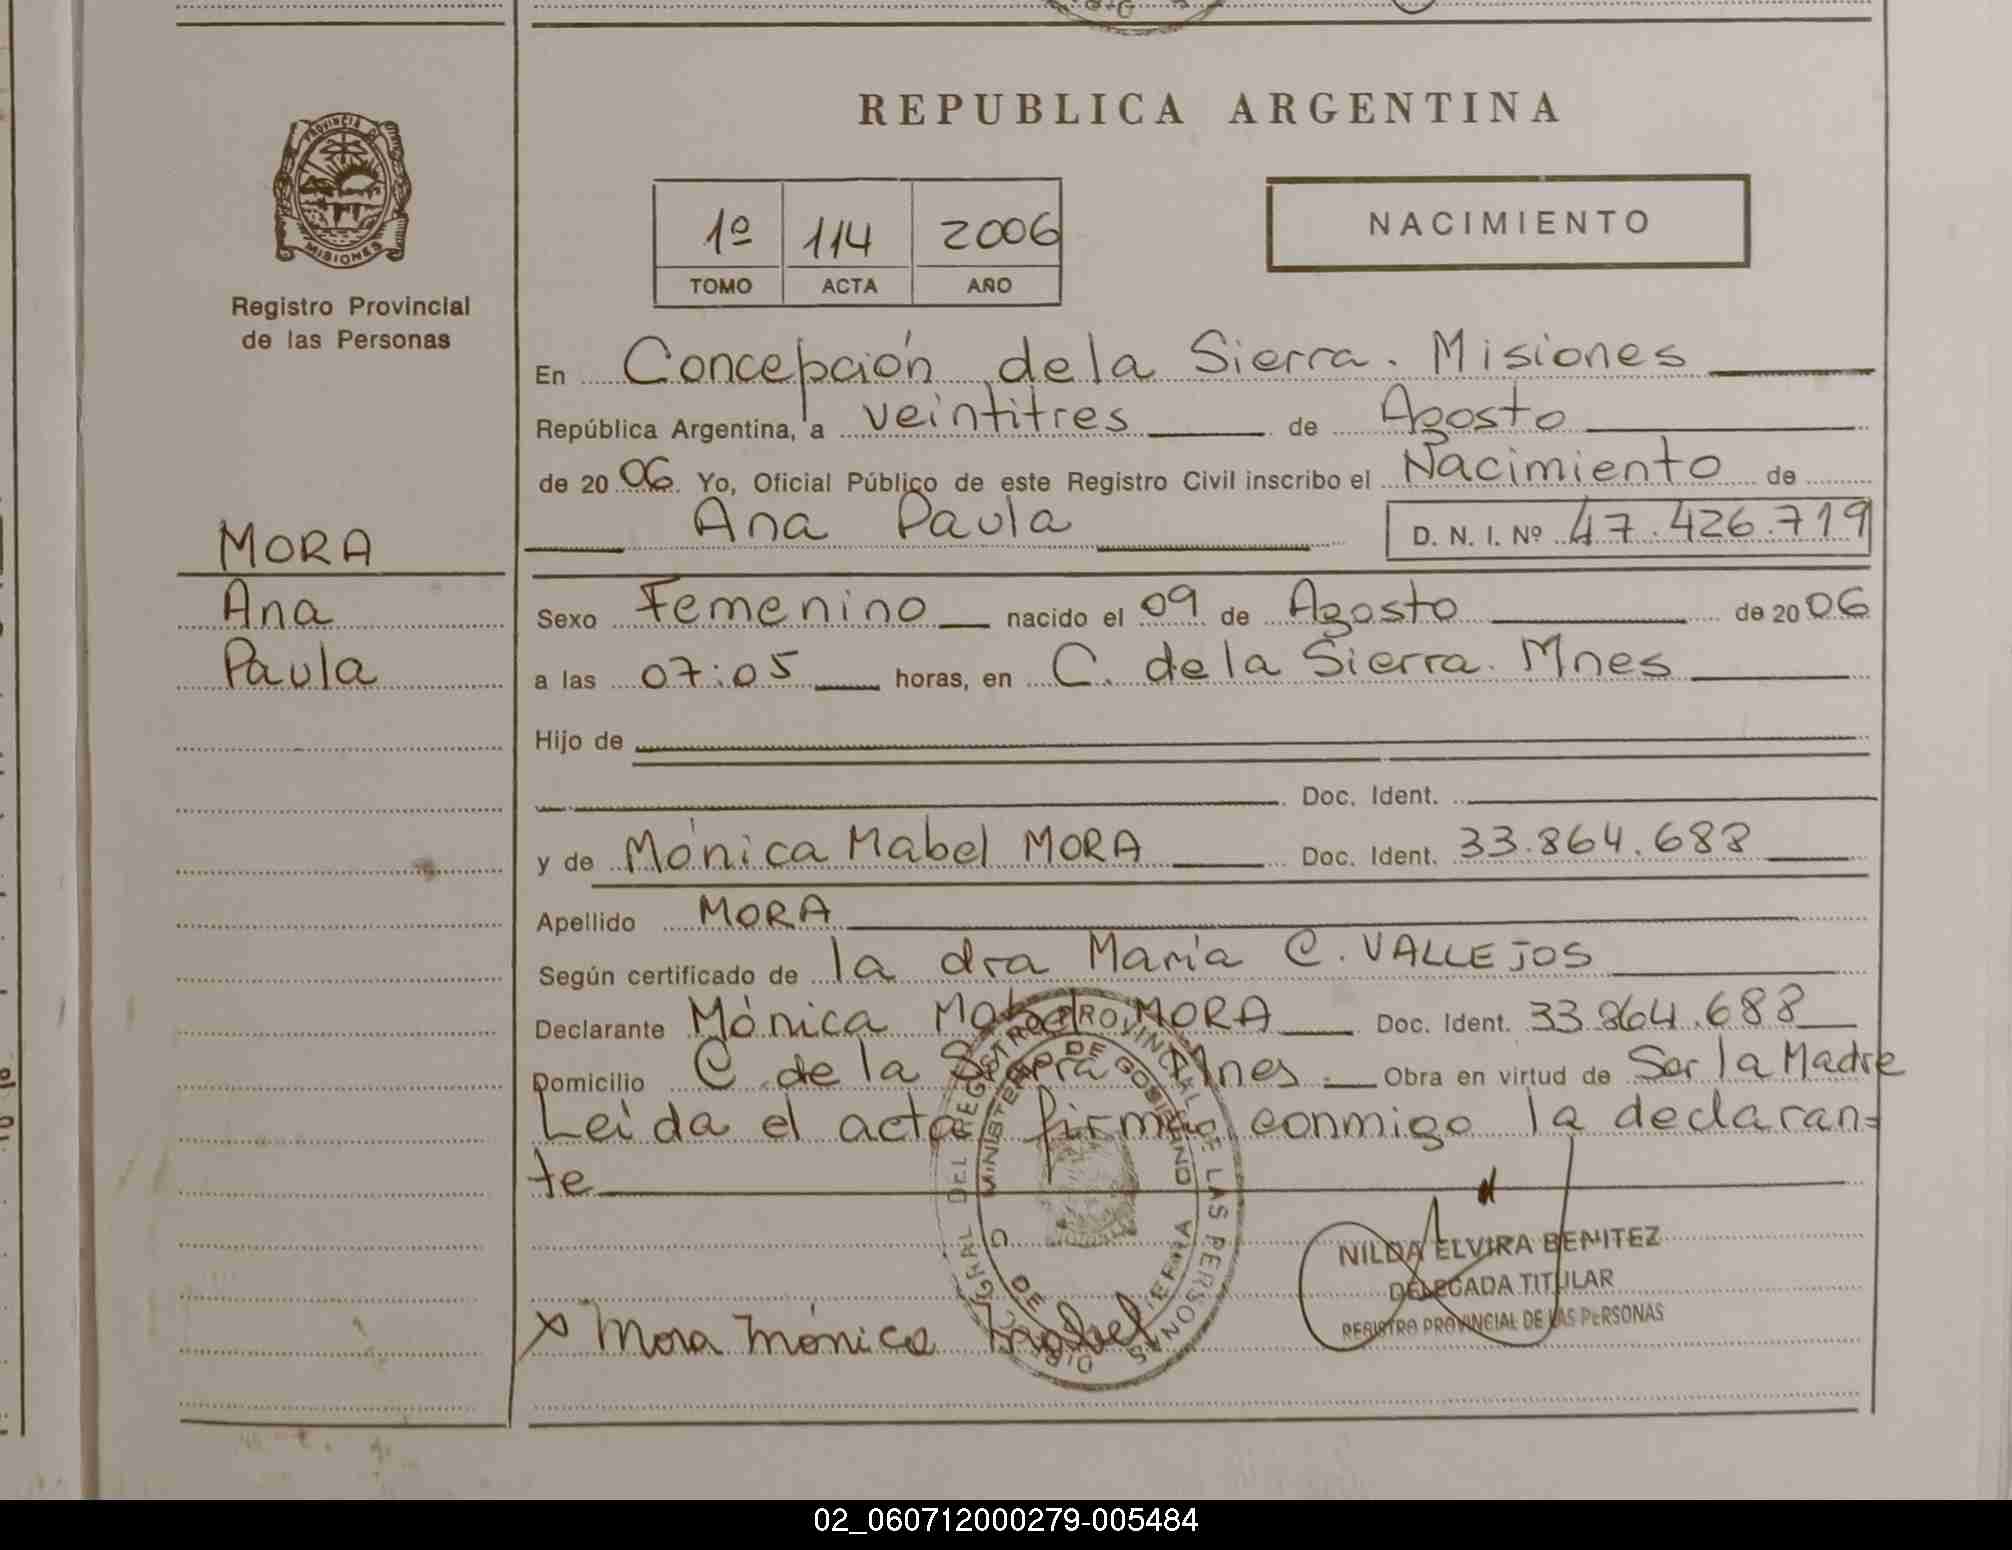 REPUBLICA ARGENTINA
PROVINCIA DE
MISIONES
Registro Provincial
de las Personas
1º 114 2006
TOMO ACTA AÑO
NACIMIENTO
En Concepción de la Sierra. Misiones
República Argentina, a veintitres de Agosto
de 2006 Yo, Oficial Público de este Registro Civil inscribo el Nacimiento de
Ana Paula D. N. I. Nº 47.426.719
MORA
Ana
Paula
Sexo Femenino nacido el 09 de Agosto de 2006
a las 07:05 horas, en C. de la Sierra. Mnes
Hijo de
Doc. Ident.
y de Mónica Mabel MORA Doc. Ident. 33.864.688
Apellido MORA
Según certificado de la dra María C. VALLEJOS
Declarante Mónica Mabel MORA Doc. Ident. 33.864.688
Domicilio C. de la Sierra Mnes Obra en virtud de Ser la Madre
Leída el acta, firma conmigo la declaran=
te
DIRECC. GRAL DEL REGISTRO PROVINCIAL DE LAS PERSONAS
MINISTERIO DE GOBIERNO
C. DE SIERRA
NILDA ELVIRA BENITEZ
DELEGADA TITULAR
REGISTRO PROVINCIAL DE LAS PERSONAS
x Mora Mónica Mabel
02_060712000279-005484